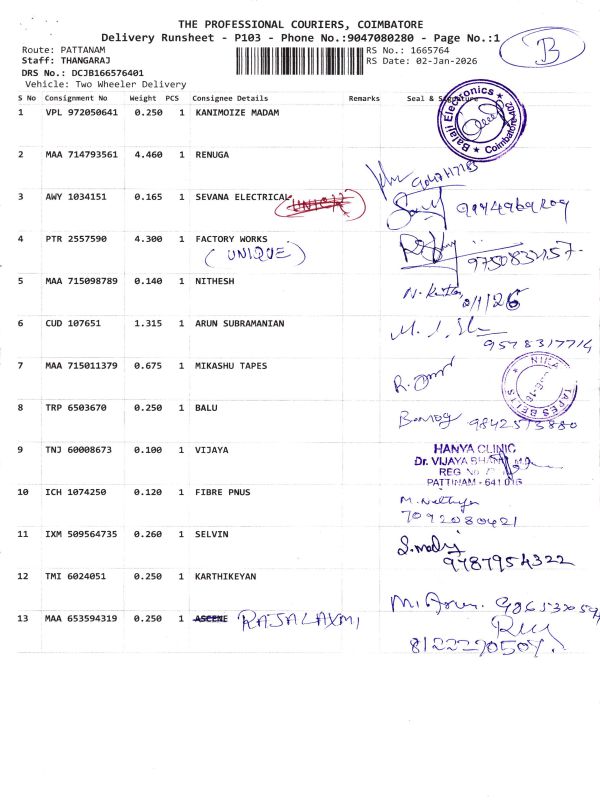 THE PROFESSIONAL COURIERS, COIMBATORE
Delivery Runsheet - P103 - Phone No.:9047080280 - Page No.:1
B
Route: PATTANAM
RS No.: 1665764
Staff: THANGARAJ
RS Date: 02-Jan-2026
DRS No.: DCJB166576401
Vehicle: Two Wheeler Delivery
S No Consignment No Weight PCS Consignee Details Remarks Seal & Signature
Balaji Electronics
Coimbatore
1 VPL 972050641 0.250 1 KANIMOIZE MADAM
2 MAA 714793561 4.460 1 RENUGA
3 AWY 1034151 0.165 1 SEVANA ELECTRICAL
9944969209
4 PTR 2557590 4.300 1 FACTORY WORKS
(UNIQUE)
5 MAA 715098789 0.140 1 NITHESH
2/1/26
6 CUD 107651 1.315 1 ARUN SUBRAMANIAN
9578317714
7 MAA 715011379 0.675 1 MIKASHU TAPES
TAPES BELTS
8 TRP 6503670 0.250 1 BALU
9842513880
9 TNJ 60008673 0.100 1 VIJAYA
HANYA CLINIC
Dr. VIJAYA
REG No
PATTINAM - 641 016
10 ICH 1074250 0.120 1 FIBRE PNUS
7092080421
11 IXM 509564735 0.260 1 SELVIN
9787954322
12 TMI 6024051 0.250 1 KARTHIKEYAN
13 MAA 653594319 0.250 1 ASCENE RAJALAXMI
8122290504.